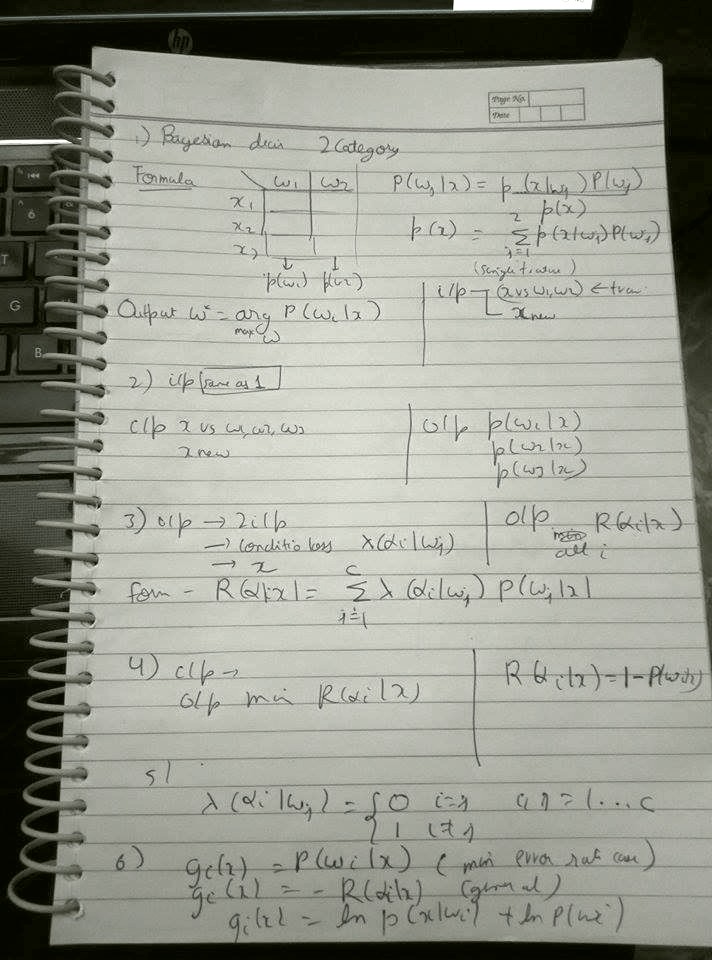 hp
Page No.
Date
1) Bayesian decis 2 Category
Formula
ω1 ω2
x1
x2
x3
p(ω1) p(ω2)
P(ωj|x) = p(x|ωj) P(ωj)
p(x)
p(x) = 2 Σ j=1 p(x|ωj) P(ωj)
Output ω* = arg max ω P(ωi|x)
i/p (x vs ω1, ω2) ← train
x new
2) i/p same as 1
i/p x vs ω1, ω2, ω3
x new
o/p p(ω1|x)
p(ω2|x)
p(ω3|x)
3) o/p → 2 i/p
→ conditio loss λ(αi|ωj)
→ x
o/p R(αi|x)
all i
form - R(αi|x) = c Σ j=1 λ(αi|ωj) P(ωj|x)
4) i/p →
o/p min R(αi|x)
R(αi|x) = 1 - P(ωi|x)
5)
λ(αi|ωj) = { 0 i=j i, j = 1...c
1 i≠j
6) gi(x) = P(ωi|x) (min error rate case)
gi(x) = - R(αi|x) (general)
gi(x) = ln p(x|ωi) + ln P(ωi)